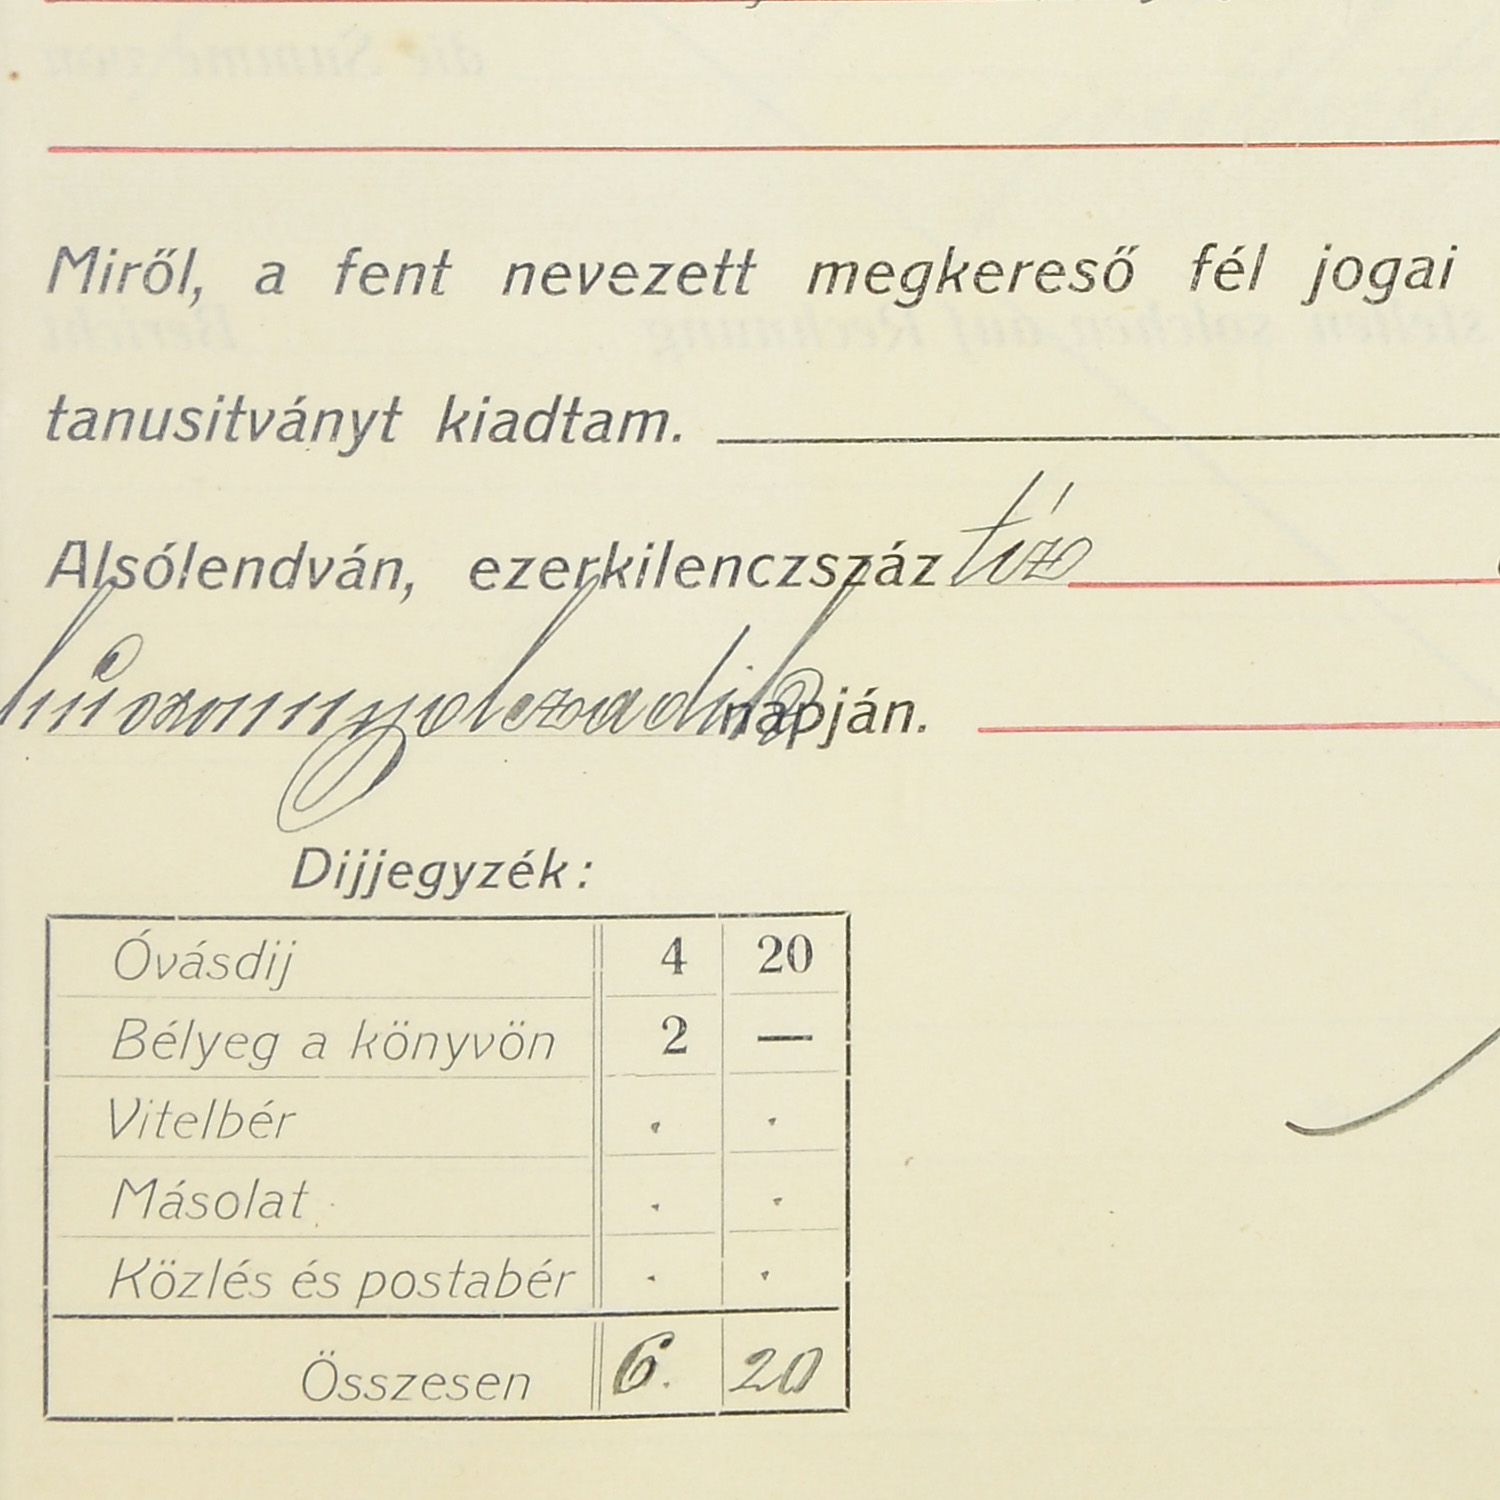 Miről, a fent nevezett megkereső fél jogai
tanusitványt kiadtam.
Alsólendván, ezerkilenczszáz tíz
huszonnyolczadik napján.
Dijjegyzék:
Óvásdij 4 20
Bélyeg a könyvön 2 —
Vitelbér . .
Másolat . .
Közlés és postabér . .
Összesen 6. 20